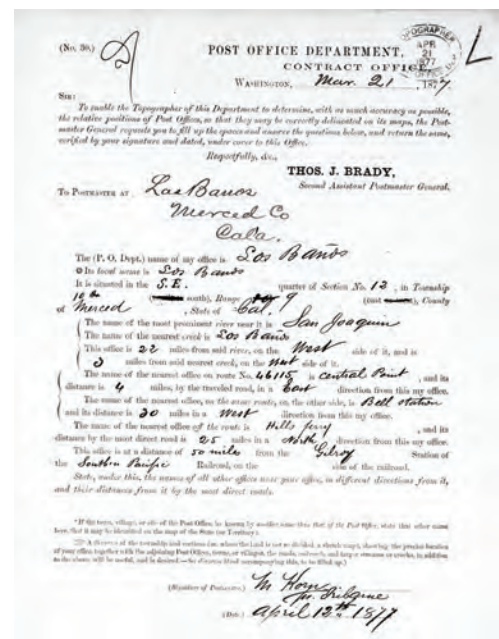 (No. 30.)
POST OFFICE DEPARTMENT,
CONTRACT OFFICE,
TOPOGRAPHER
APR
21
1877
WASHINGTON, Mar. 21, 1877
SIR:
To enable the Topographer of this Department to determine, with as much accuracy as possible,
the relative positions of Post Offices, so that they may be correctly delineated on its maps, the Post-
master General requests you to fill up the spaces and answer the questions below, and return the same,
verified by your signature and dated, under cover to this Office.
Respectfully, &c.,
THOS. J. BRADY,
Second Assistant Postmaster General.
TO POSTMASTER AT Las Banos
Merced Co
Cala.
The (P. O. Dept.) name of my office is Los Baños
Its local name is Los Banos
It is situated in the S.E. quarter of Section No. 12, in Township
10th south), Range 9 (east), County
of Merced, State of Cal.
The name of the most prominent river near it is San Joaquin
The name of the nearest creek is Los Banos
This office is 22 miles from said river, on the West side of it, and is
3 miles from said nearest creek, on the West side of it.
The name of the nearest office on route No. 46115 is Central Point, and its
distance is 4 miles, by the traveled road, in a East direction from this my office.
The name of the nearest office, on the same route, on the other side, is Bell Station
and its distance is 30 miles in a West direction from this my office.
The name of the nearest office off the route is Hills ferry, and its
distance by the most direct road is 25 miles in a North direction from this my office.
This office is at a distance of 50 miles from the Gilroy Station of
the Southern Pacific Railroad, on the side of the railroad.
State, under this, the names of all other offices near your office, in different directions from it,
and their distances from it by the most direct roads.
* If the town, village, or site of the Post Office, be known by another name than that of the Post Office, state that other name
here, that it may be identified on the map of the State (or Territory):
A diagram of the township and sections (or, where the land is not so divided, a sketch map), showing the precise location
of your office, together with the adjoining Post Offices, towns, or villages, the roads, railroads, and larger streams or creeks, in addition
to the above, will be useful, and is desired
(Signature of Postmaster.) M Korn
(Date.) April 12th 1877